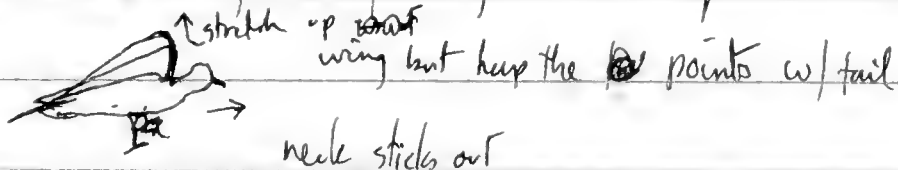 stretch up
wing but keep the points w/ tail
neck sticks out